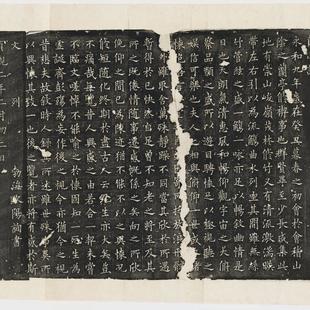 和九年歲在癸丑暮春之初會於會稽山
陰之蘭亭脩禊事也群賢畢至少長咸集此
地有崇山峻嶺茂林脩竹又有清流激湍暎
帶左右引以為流觴曲水列坐其間雖無絲
竹管絃之盛一觴一詠亦足以暢敘幽情是
日也天朗氣清惠風和暢仰觀宇宙之大俯
察品類之盛所以遊目騁懷足以極視聽之
娛信可樂也夫人之相與俯仰一世
懷抱
雖取舍萬殊靜躁不同當其欣於所遇
暫得於己快然自足曾不知老之將至及其
所之既倦情隨事遷感慨係之矣向之所欣
俛仰之間已為陳迹猶不能不以之興懷況
脩短隨化終期於盡古人云死生亦大矣豈
不痛哉每攬昔人興感之由若合一契未嘗
不臨文嗟悼不能喻之於懷固知一死生為
虛誕齊彭殤為妄作後之視今亦猶今之視
昔悲夫故敘時人錄其所述雖世殊事異所
以興懷其致一也後之覽者亦將有感於斯
文 列
勃海歐陽詢書